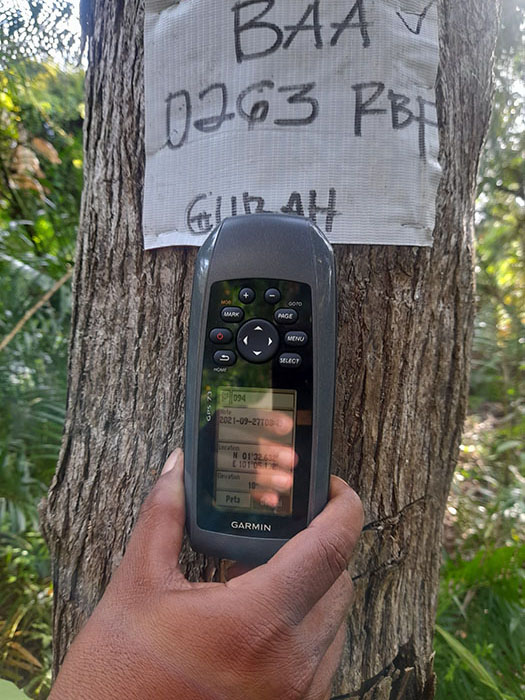 BAA ✓
0263 RBF
GURAH
+ −
MOB GOTO
MARK PAGE
MENU
HOME SELECT
GPS 73
094
2021-09-27T09
Location
N 01°32.
E 101°05.
Elevation
Peta
GARMIN